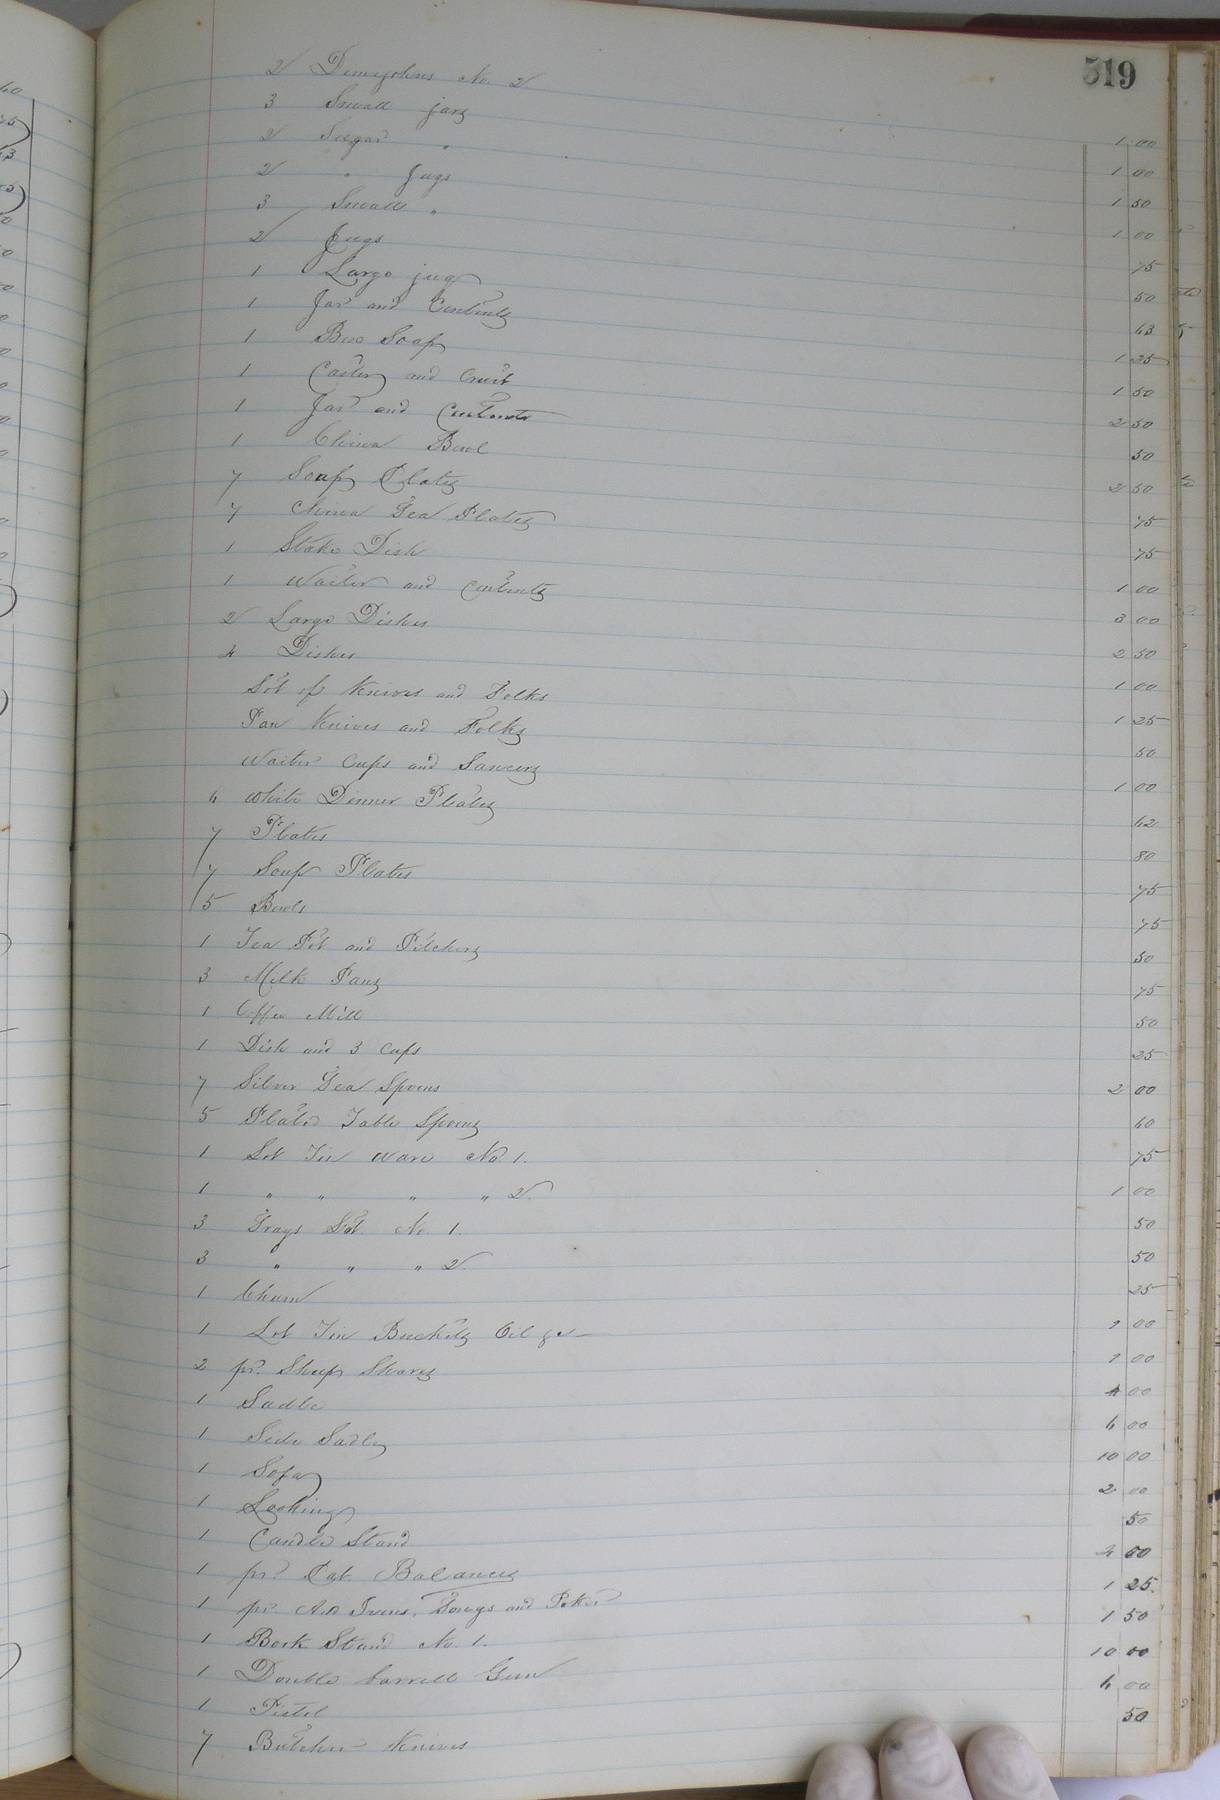 519
2 Demijohns No. 2 1 00
3 Small jars 1 00
2 Sugar " 1 50
2 " Jugs 1 00
3 Small " 75
2 Jugs 50
1 Large jug 63
1 Jar and Contents 1 25
1 Box Soap 1 50
1 Caster and Cruit 2 50
1 Jar and Contents 50
1 China Bowl 2 50
7 Soup Plates 75
7 China Tea Plates 75
1 Stake Dish 1 00
1 Waiter and Contents 3 00
2 Large Dishes 2 50
4 Dishes 1 00
Set of Knives and Folks 1 25
Pan Knives and Folks 50
Waiter Cups and Saucers 1 00
6 White Dinner Plates 62
7 Plates 80
7 Soup Plates 75
5 Bowls 75
1 Tea Pot and Pitchers 50
3 Milk Pans 75
1 Coffee Mill 50
1 Dish and 3 Cups 25
7 Silver Tea Spoons 2 00
5 Plated Table Spoons 40
1 Lot Tin Ware No 1. 75
1 " " " " 2. 1 00
3 Trays Lot No. 1. 50
3 " " " 2. 50
1 Churn 25
1 Lot Tin Buckets Oil &c 1 00
2 pr. Sheep Shears 1 00
1 Sadle 4 00
1 Side Sadle 6 00
1 Sofa 10 00
1 Looking 2 00
1 Candle Stand 50
1 pr. Pat. Balances 4 00
1 pr. And Irons, Tongs and Poker 1 25
1 Book Stand No. 1. 1 50
1 Double barrell Gun 10 00
1 Pistol 6 00
7 Butcher Knives 50